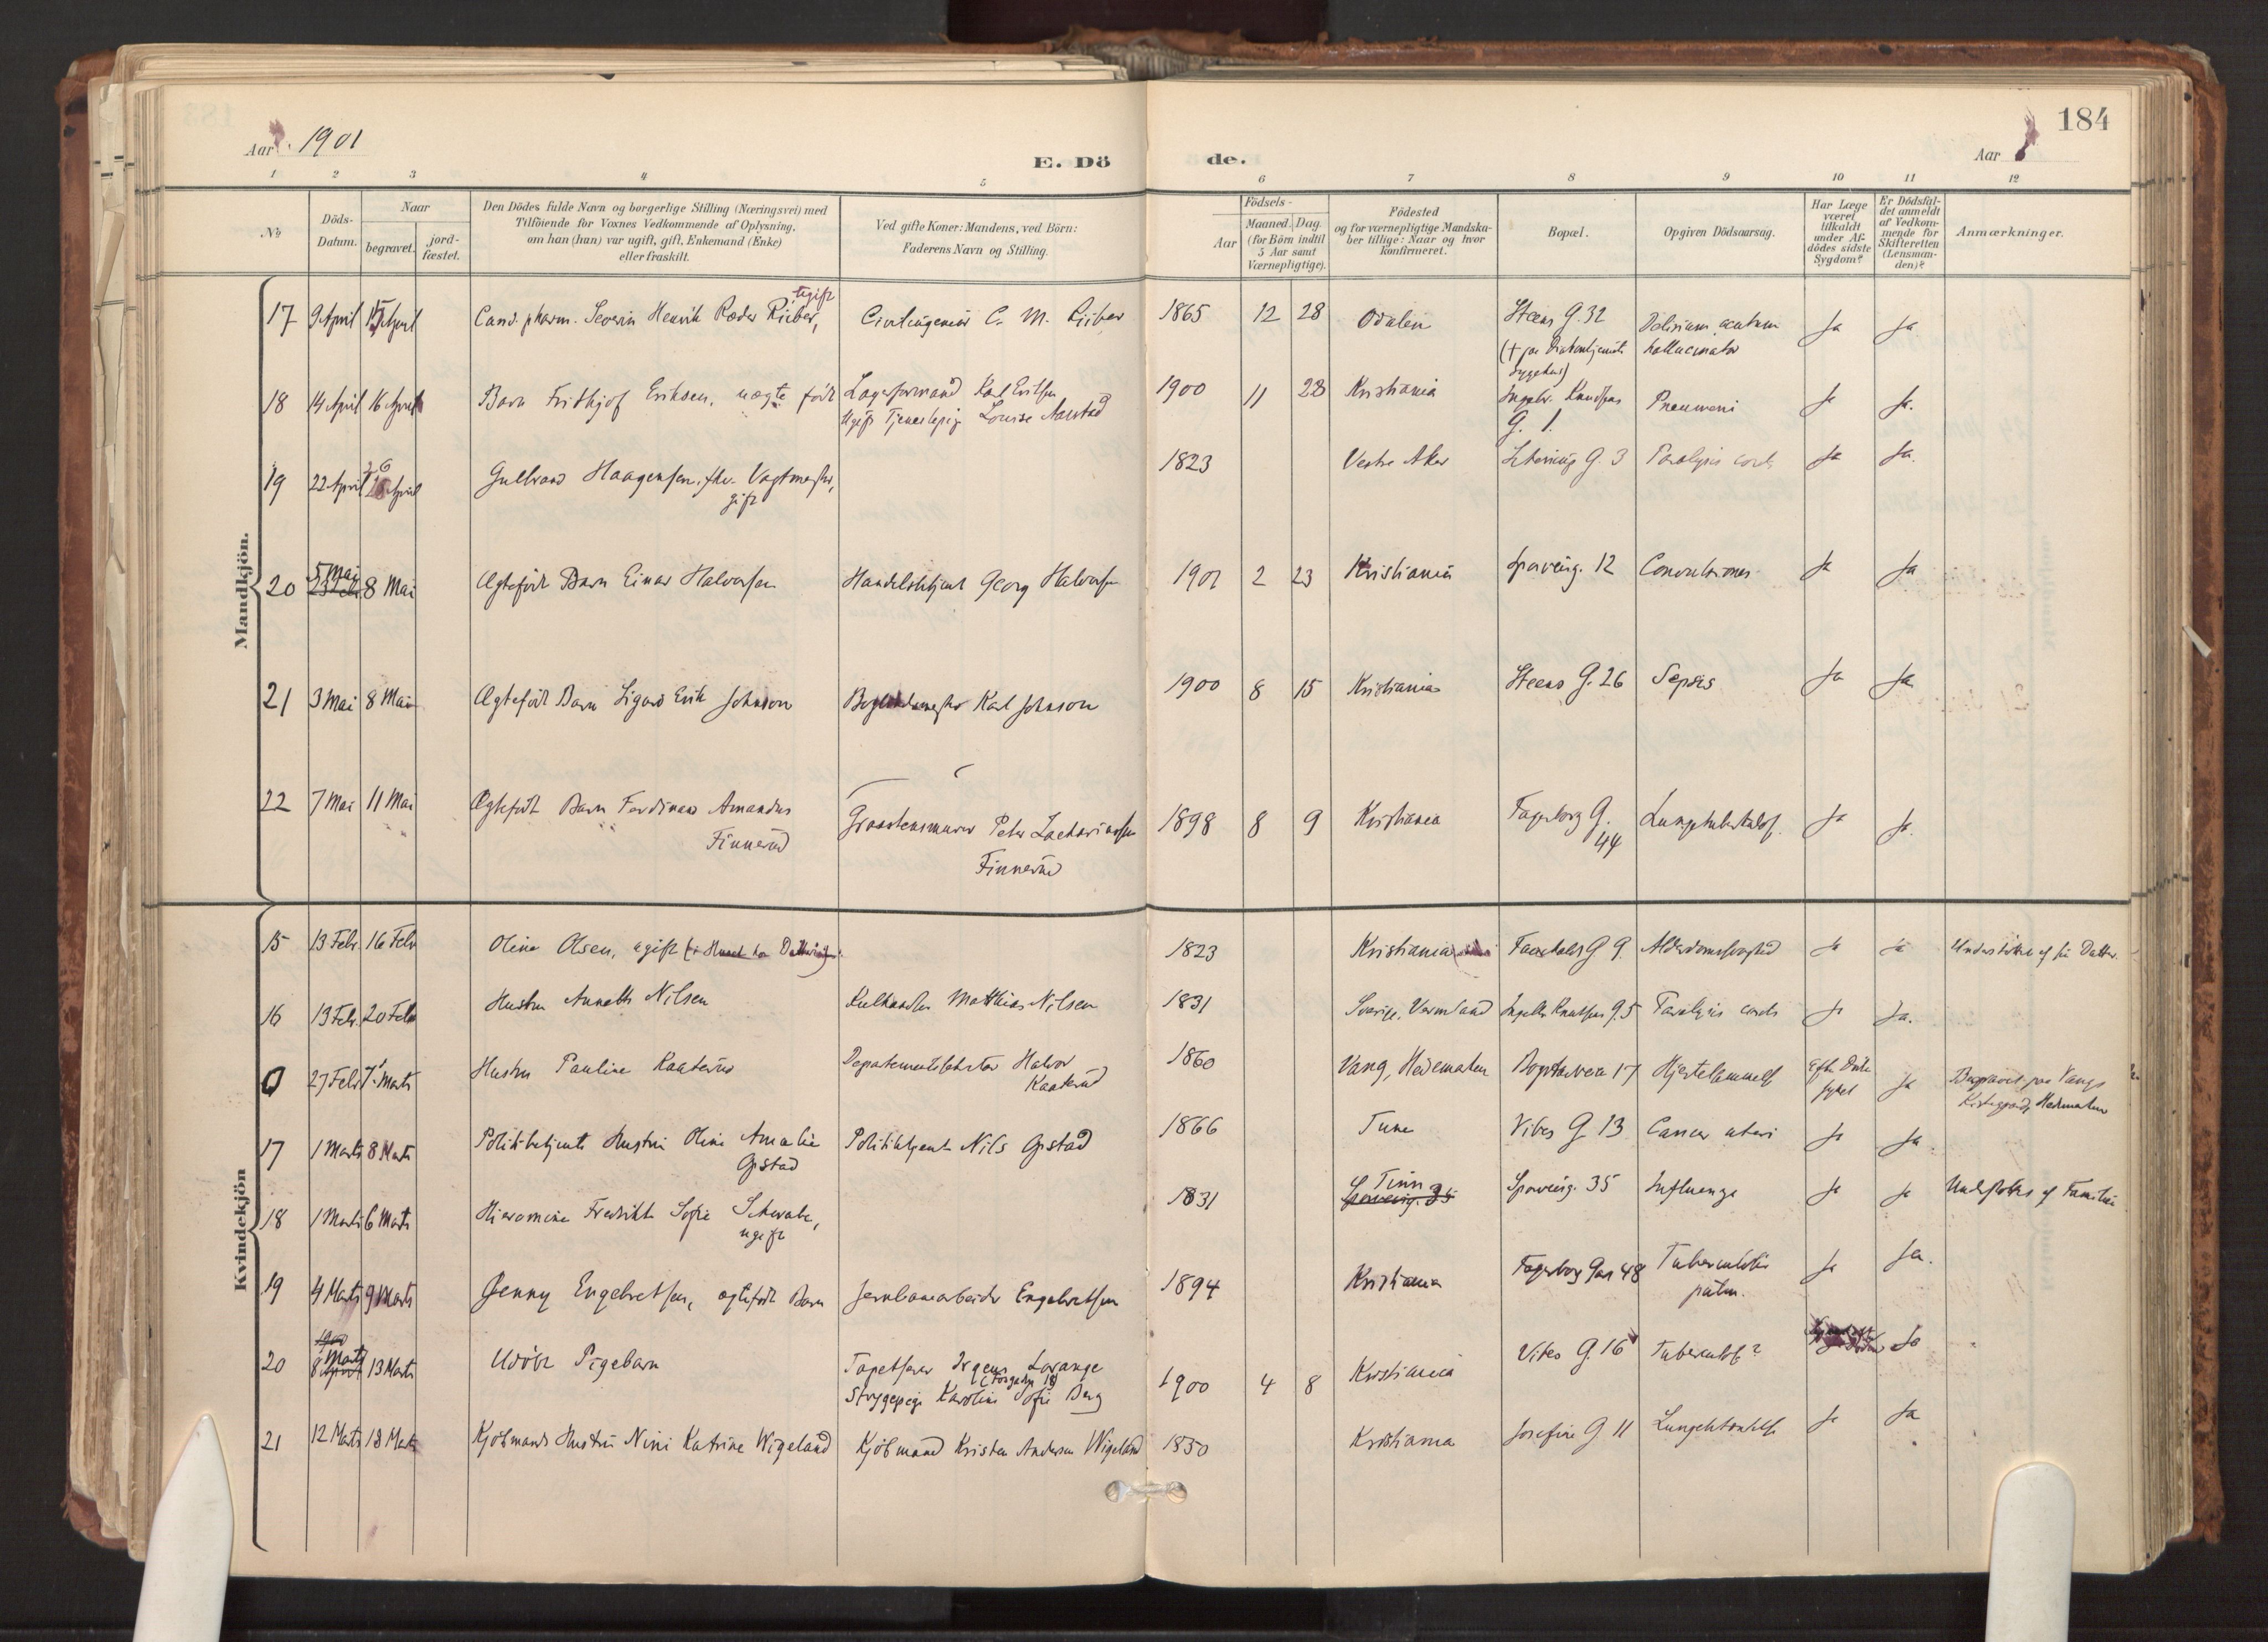 184
Aar 1901
E. Dö de.
Aar
1 2 3 4 5 6 7 8 9 10 11 12
No
Döds-Datum.
Naar begravet. jord-fæstet.
Den Dödes fulde Navn og borgerlige Stilling (Næringsvei) med
Tilföiende for Voxnes Vedkommende af Oplysning,
om han (hun) var ugift, gift, Enkemand (Enke)
eller fraskilt.
Ved gifte Koner: Mandens, ved Börn:
Faderens Navn og Stilling.
Födsels-
Aar Maaned. Dag.
(for Börn indtil
5 Aar samt
Værnepligtige).
Födested
og for værnepligtige Mandska-
ber tillige: Naar og hvor
konfirmeret.
Bopæl.
Opgiven Dödsaarsag.
Har Læge
været
tilkaldt
under Af-
dödes sidste
Sygdom?
Er Dödsfal-
det anmeldt
af Vedkom-
mende for
Skifteretten
(Lensman-
den)?
Anmærkninger.
Mandkjön.
17 9 April 15 April Cand. pharm. Severin Henrik Ræder Riiber, ugift Civilingeniör C. M. Riiber 1865 12 28 Odalen Steens G. 32 Delirium acutum Ja Ja
(+ paa Sygehus) hallucinator
18 14 April 16 April Barn Fridthjof Eriksen, uægte födt Lagerformand Karl Eriksen 1900 11 28 Kristiania Ingebr. Knudsens Pneumoni Ja Ja.
Ugift Tjenestepige Louise Aamstad G. 1.
19 22 April 26 April Gulbrand Haagensen, fhv. Vagtmester, 1823 Vestre Aker Schønings G. 3 Paralysis cordis Ja Ja.
gift
20 5 Mai 8 Mai Ægtefödt Barn Einar Halvorsen Handelsbetjent Georg Halvorsen 1901 2 23 Kristiania Sporveisg. 12 Convulsiones Ja Ja
21 3 Mai 8 Mai Ægtefödt Barn Sigurd Erik Johnson Karl Johnson 1900 8 15 Kristiania Steens G. 26 Sepsis Ja Ja
22 7 Mai 11 Mai Ægtefödt Barn Ferdinand Amandus Graastensmurer Peter Zachariassen 1898 8 9 Kristiania Fagerborg G. Lungetuberkulose. Ja Ja.
Finnerud Finnerud 44
Kvindekjön
15 13 Febr. 16 Febr Oline Olsen, ugift 1823 Kristiania G 9. Alderdomssvaghed Ja Ja Understöttet af sin Datter.
16 13 Febr. 20 Febr Hustru Annette Nilsen Kulhandler Matthias Nilsen 1831 Sverige, Vermland Ingebr. Knudsens G. 5 Paralysis cordis Ja Ja.
0 27 Febr 7 Marts Hustru Pauline Kaaterud Departementsbetjent Halvor 1860 Vang, Hedemarken Bogstadveien 17 Hjertelammelse Ja Begravet paa Vangs
Kaaterud Kirkegaard, Hedemarken
17 1 Marts 8 Marts Politibetjents Hustru Oline Amalie Politibetjent Nils Opstad 1866 Tune Vibes G 13 Cancer uteri Ja Ja
Opstad
18 1 Marts 6 Marts Hieronime Fredrikke Sofie Schwabe, 1831 Tinn Sporveisg. 35 Influenza Ja Ja Understöttes af Familie
ugift Sporveisg. 35
19 4 Marts 9 Marts Jenny Engebretsen, ægtefödt Barn Jernbanearbeider Engebretsen 1894 Kristiania Fagerborg Gade 48 Tuberculosis Ja Ja.
pulm.
20 1900 8 Marts 13 Marts Udöbt Pigebarn Tapetserer Irgens Lorange 1900 4 8 Kristiania Vibes G. 16 Tuberkulose? Ja
(Torgaden 18)
Strygepige Karoline Sofie Berg
21 12 Marts 18 Marts Kjöbmands Hustru Nini Katrine Wigeland Kjöbmand Kristen Andersen Wigeland 1850 Kristiania Josefine G 11 Ja Ja